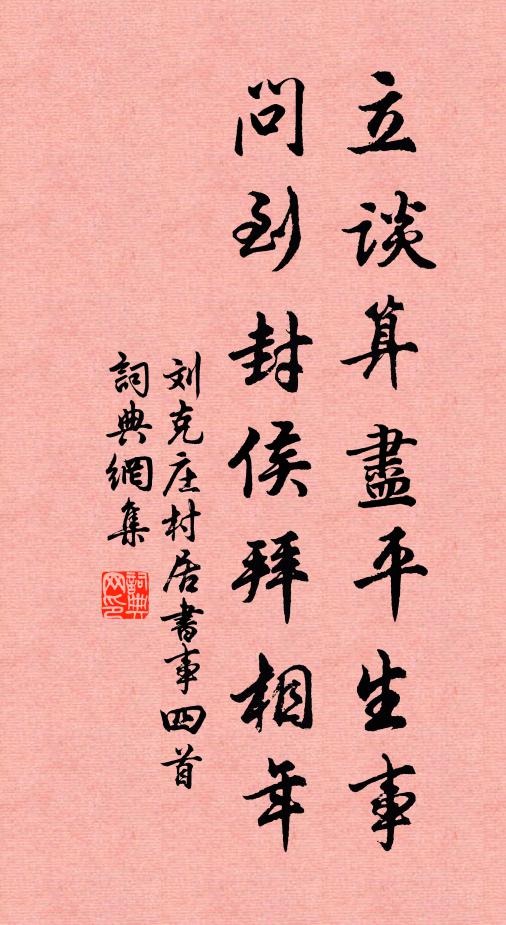 立談算盡平生事
問到封侯拜相年
刘克庄村居書事四首
詞典網集
詞典网印